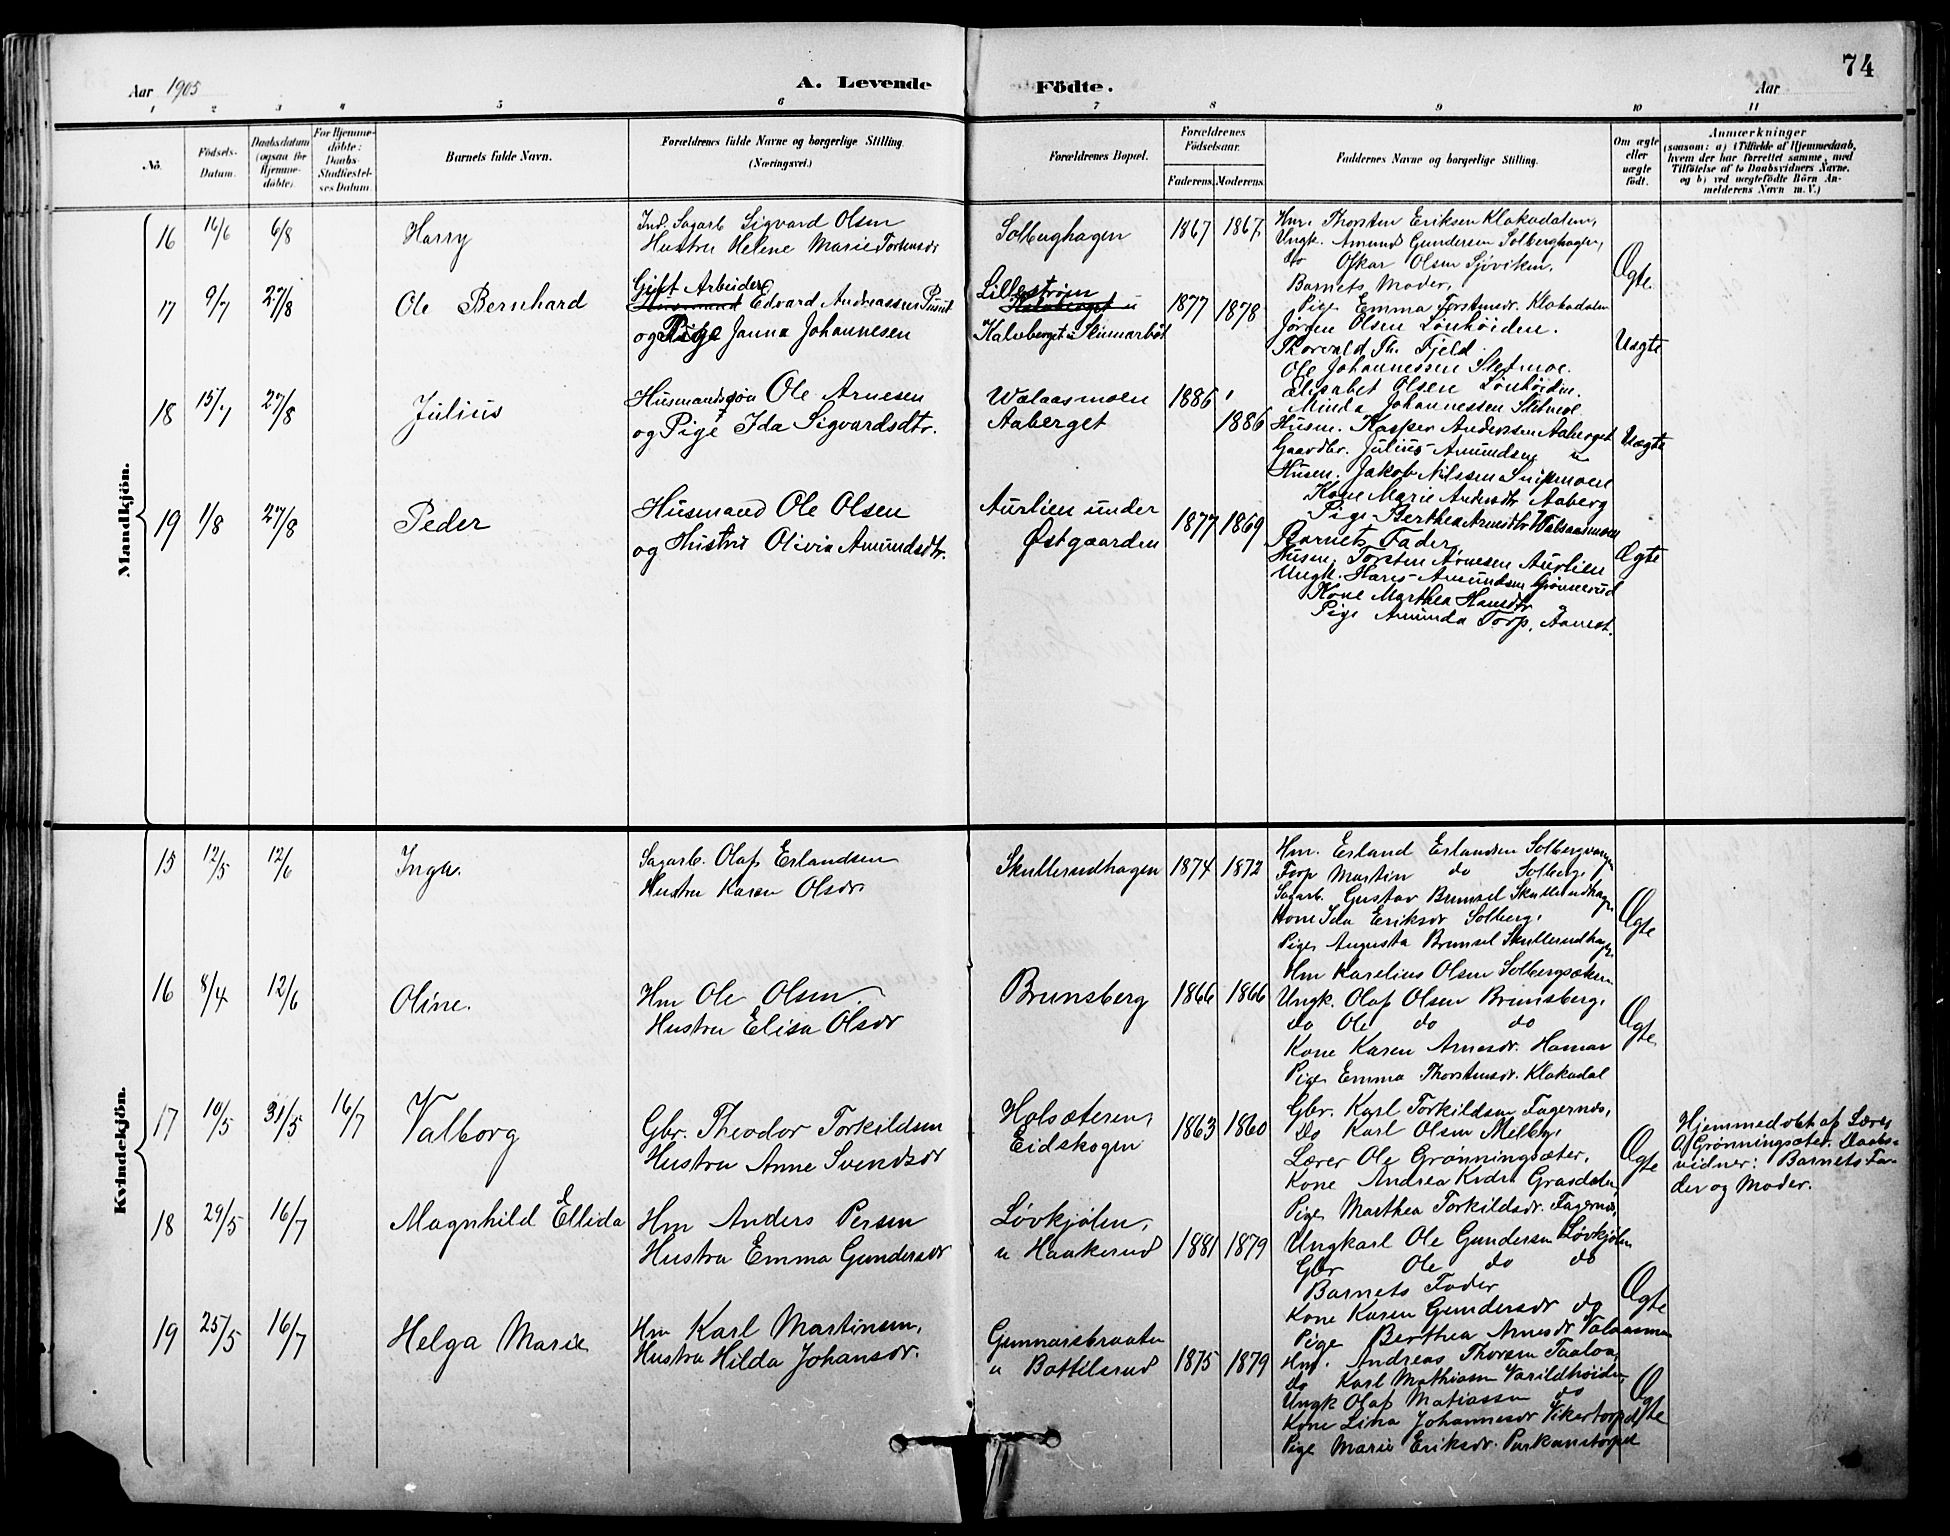 74
Aar 1905
A. Levende
Födte.
Aar
1 2 3 4 5 6 7 8 9 10 11
No.
Födsels-Datum.
Daabsdatum (ogsaa for Hjemmedöbte).
For Hjemmedöbte: Daabs-Stadfæstelses Datum.
Barnets fulde Navn.
Forældrenes fulde Navne og borgerlige Stilling.
(Næringsvei.)
Forældrenes Bopæl.
Forældrenes Födselsaar.
Faderens. Moderens.
Faddernes Navne og borgerlige Stilling.
Om ægte eller uægte födt.
Anmærkninger
(saasom: a) i Tilfælde af Hjemmedaab,
hvem der har forrettet samme, med
Tilföielse af to Daabsvidners Navne,
og b) ved uægtefödte Börn An-
melderens Navn m. V.)
Mandkjön.
16 16/6 6/8 Harry
Ind. Sagarb. Sigvard Olsen
Hustru Helene Marie Torkensdr
Solberghagen 1867 1867
Hm. Thorsten Eriksen Klokadalen,
Ungk. Amund Gundersen Solberghagen,
do Oskar Olsen Sjøviken.
Barnets Moder,
Pige Emma Torstensdr. Klokadalen
Ægte
17 9/7 27/8 Ole Bernhard
Gift Arbeider
Edvard Andreassen
og Pige Janna Johannesen
Lillestrøm
Kalvberget u Skinnarbøl
1877 1878
Jørgen Olsen Lønhøiden.
Thorvald Th. Fjeld
Ole Johannessen Sletmoe.
Elisabet Olsen Lønhøiden.
Minda Johannessen Sletmoe
Uægte
18 15/7 27/8 Julius
Husmandssøn Ole Arnesen
og Pige Ida Sigvardsdtr.
Walaasmoen
Aaberget
1886 1886
Husm. Kasper Andersen Aaberget
Gaardbr. Julius Amundsen
Husm. Jakob Nilssen Snipmoen
Kone Marie Andersdtr Aaberg
Pige Berthea Arnesdtr Walaasmoen
Uægte
19 1/8 27/8 Peder
Husmand Ole Olsen
og Hustru Olivia Amundsdtr.
Aurlien under
Østgaarden
1877 1869
Barnets Fader
Husm. Torsten Arnesen Aurlien
Ungk. Hans Amundsen Grønnerud
Kone Marthea Hansdtr
Pige Amunda Torp, Aamot.
Ægte
Kvindekjön.
15 12/5 12/6 Inga.
Sagarb. Olaf Erlandsen
Hustru Karen Olsdr
Skullerudhagen 1874 1872
Hm. Erland Erlandsen Solbergvangen
Torp Martin do Solberg,
Sagarb. Gustav Brunsel Skullerudhagen
Kone Ida Eriksdr Solberg,
Pige Augusta Brunsel Skullerudhagen
Ægte
16 8/4 12/6 Oline.
Hm Ole Olsen.
Hustru Elisa Olsdr
Brunsberg 1866 1866
Hm Karelius Olsen
Ungk. Olaf Olsen Brunsberg,
do Ole do do
Kone Karen Arnesdr. Hamar
Pige Emma Thorstensdr. Klokadal
Ægte
17 10/5 31/5 16/7 Valborg
Gbr. Theodor Torkildsen
Hustru Anne Svendsdr
Holsæteren,
Eidskogen
1863 1860
Gbr. Karl Torkildsen Fagernes,
Do Karl Olsen Melby,
Lærer Ole Grønningsæter,
Kone Andrea Kndr. Grasdalen,
Pige Marthea Torkildsdr. Fagernes,
Ægte
Hjemmedøbt af Lærer
O. Grønningsæter. Daabs-
vidner: Barnets Fa-
der og Moder.
18 29/5 16/7 Magnhild Ellida
Hm Anders Persen
Hustru Emma Gundersdr
Løvkjølen,
u Haakerud
1881 1879
Ungkarl Ole Gundersen Løvkjølen
Gbr Ole do do
Barnets Fader
Kone Karen Gundersdr do
Pige Berthea Arnesdr Valaasmoen
Ægte
19 25/5 16/7 Helga Marie
Hm Karl Martinsen,
Hustru Hilda Johansdr.
Gunnarsbraaten
u Bottilsrud
1875 1879
Hm. Andreas Thoresen
do Karl Mathiasen Varildhøiden
Ungk Olaf Matiassen do
Kone Lina Johannesdr Vikertorpet
Pige Marie Eriksdr.
Ægte